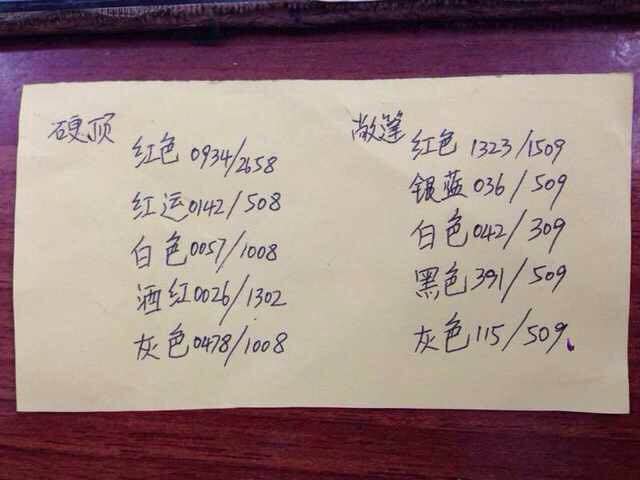 硬顶
红色 0934/2658
红运 0142/508
白色 0057/1008
酒红 0026/1302
灰色 0478/1008
敞篷
红色 1323/1509
银蓝 036/509
白色 042/309
黑色 391/509
灰色 115/509